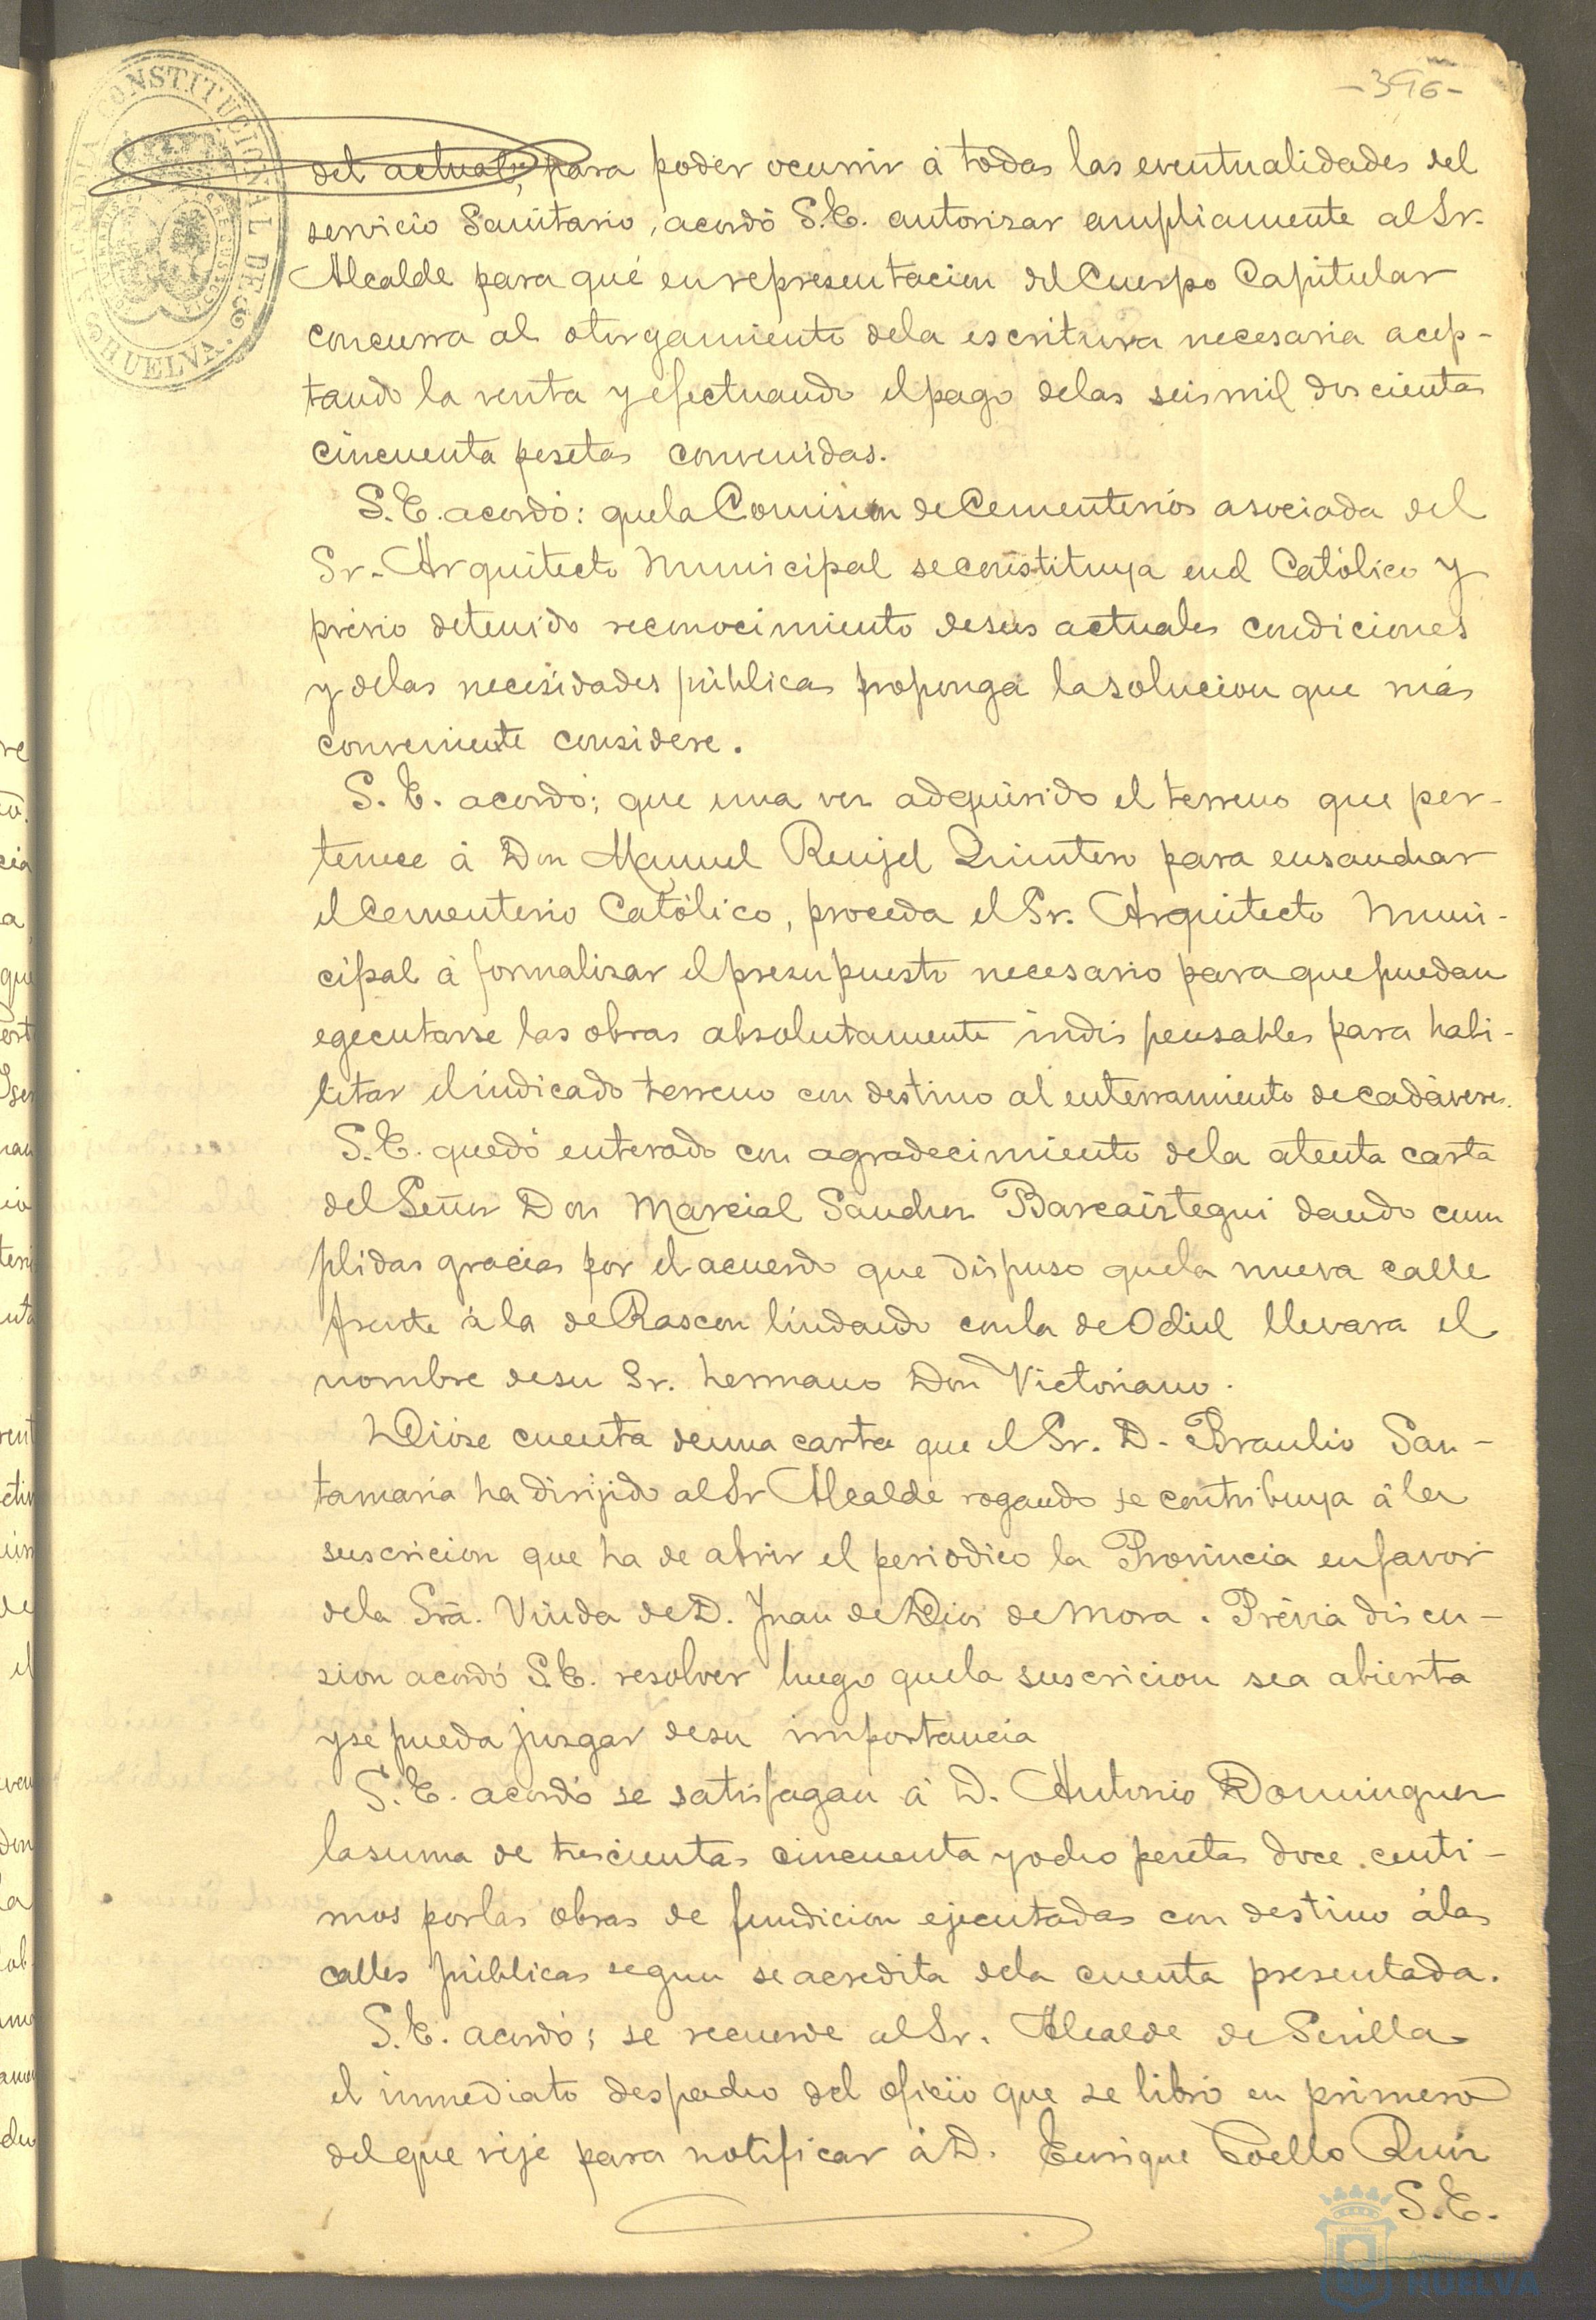 -396-
ALCALDIA CONSTITUCIONAL DE HUELVA.
del actual, para poder ocurrir á todas las eventualidades del
servicio Sanitario, acordó S.E. autorizar ampliamente al Sr.
Alcalde para qué en representacion del Cuerpo Capitular
concurra al otorgamiento dela escritura necesaria acep-
tando la venta y efectuando el pago delas seis mil doscientas
cincuenta pesetas convenidas.
S.E. acordó: quela Comision de Cementerios asociada del
Sr. Arquitecto Municipal se constituya en el Católico y
prévio detenido reconocimiento desus actuales condiciones
y delas necesidades públicas proponga la solucion que más
conveniente considere.
S. E. acordó; que una vez adquirido el terreno que per-
tenece á Don Manuel Rengel Quintero para ensanchar
el Cementerio Católico, proceda el Sr. Arquitecto Muni-
cipal á formalizar el presupuesto necesario para que puedan
egecutarse las obras absolutamente indispensables para habi-
litar el indicado terreno con destino al enterramiento de cadáveres.
S.E. quedó enterado con agradecimiento dela atenta carta
del Señor Don Marcial Sanchez Barcaiztegui dando cum
plidas gracias por el acuerdo que dispuso quela nueva calle
frente á la de Rascon lindando conla de Odiel llevara el
nombre desu Sr. hermano Don Victoriano.
Dióse cuenta deuna carta que el Sr. D. Braulio San-
tamaria ha dirijido al Sr Alcalde rogando se contribuya á la
suscricion que ha de abrir el periodico la Provincia en favor
dela Sra. Viuda de D. Juan de Dios de Mora. Prévia discu-
sion acordó S.E. resolver luego quela suscricion sea abierta
y se pueda juzgar desu importancia
S.E. acordó se satisfagan á D. Antonio Dominguez
la suma de trescientas cincuenta y ocho pesetas doce centi-
mos por las obras de fundicion ejecutadas con destino á las
calles públicas segun se acredita dela cuenta presentada.
S.E. acordó; se recuerde al Sr. Alcalde de Sevilla
el inmediato despacho del oficio que se libró en primero
del que rije para notificar á D. Enrique Coello Ruiz
S.E.
HUELVA